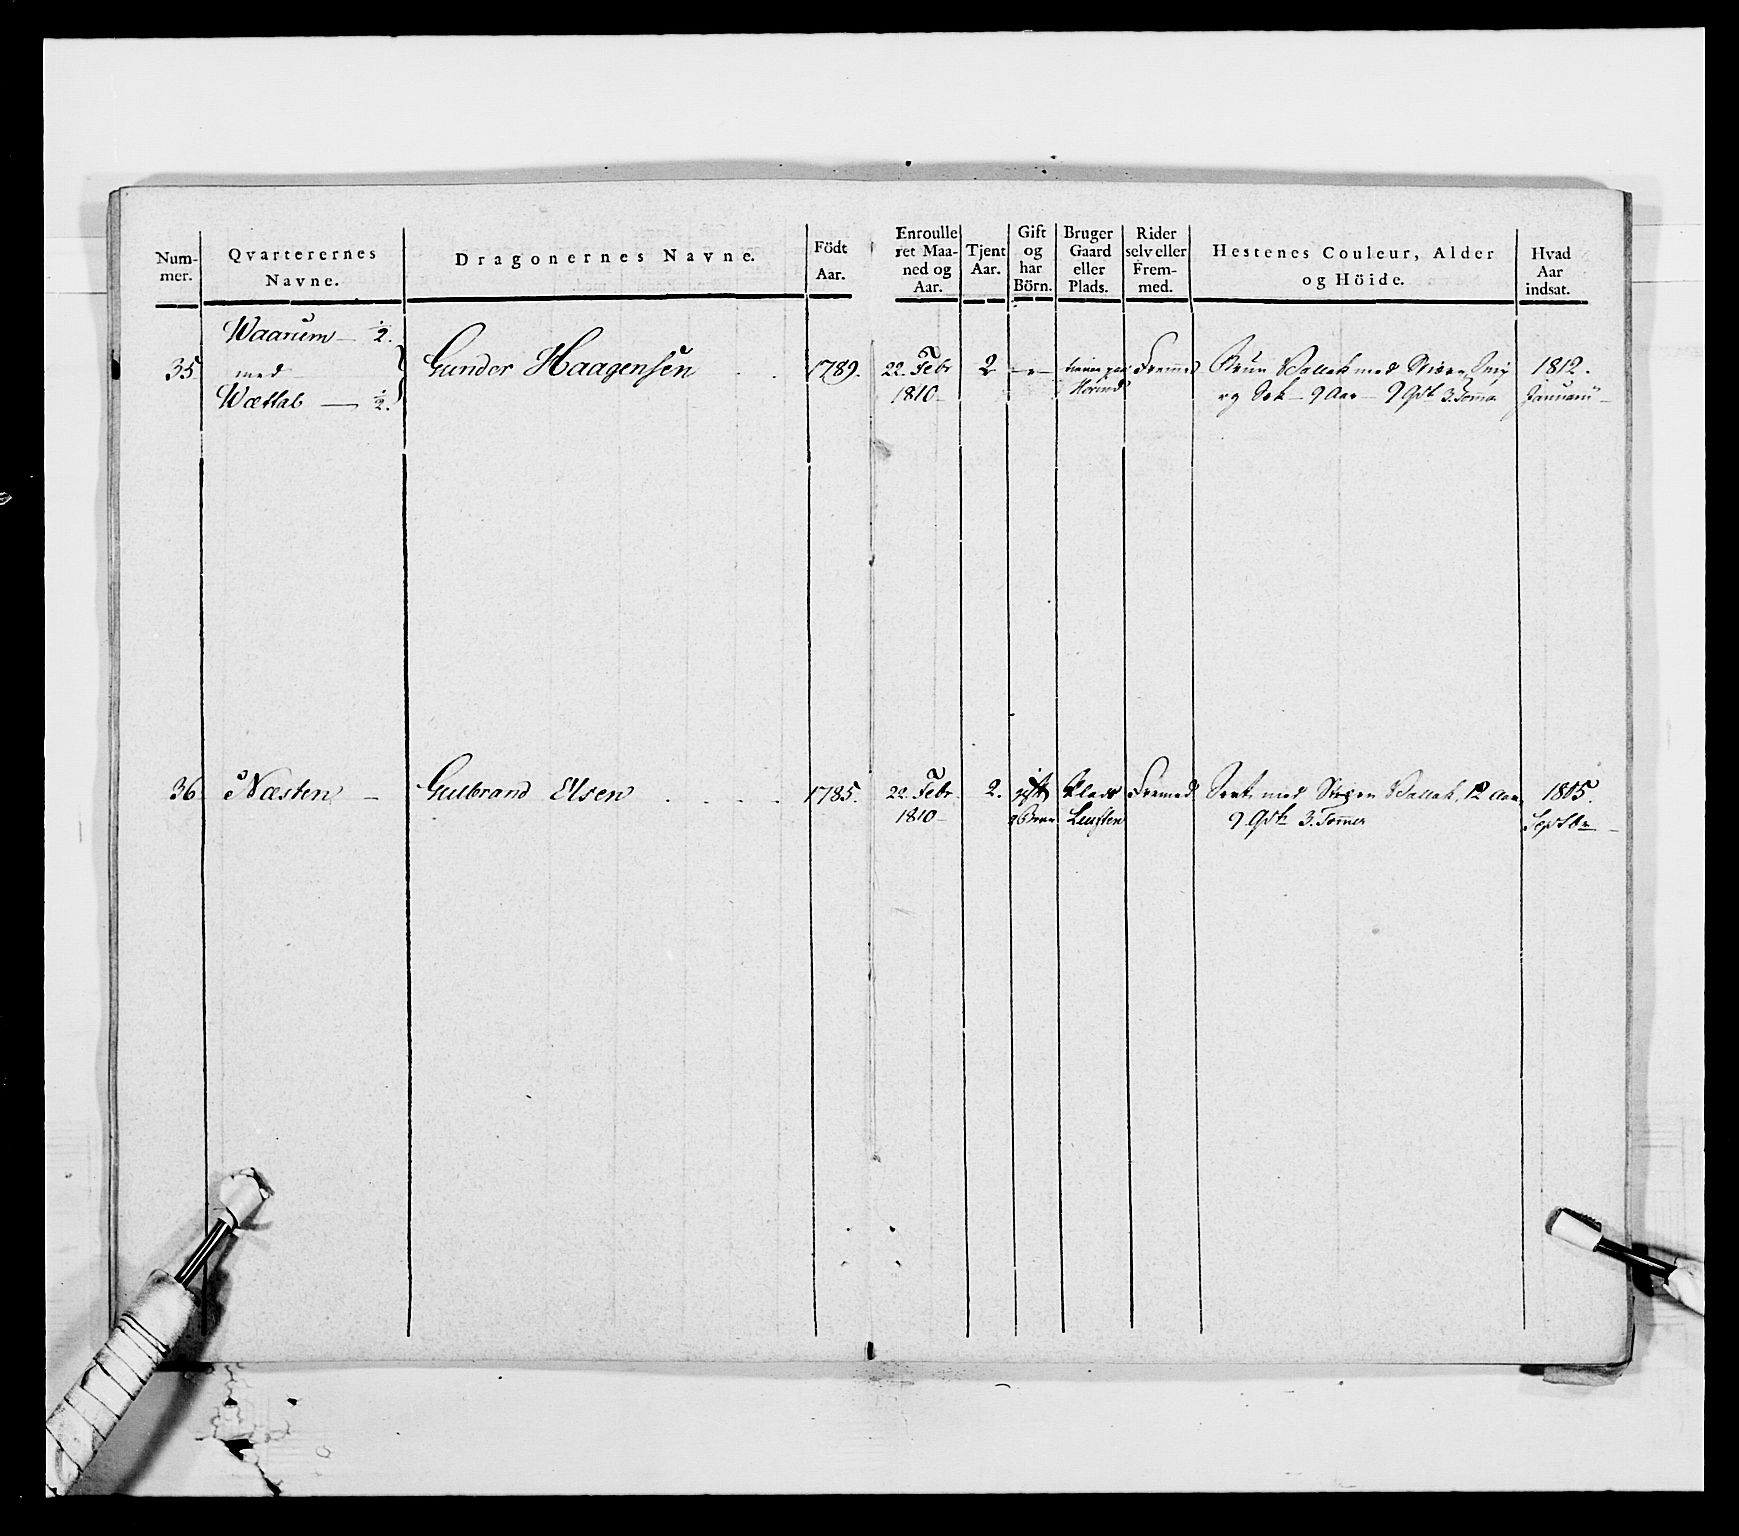 Num-
mer.
Qvarterernes
Navne.
Dragonernes Navne.
Födt
Aar.
Enroulle
ret Maa-
ned og
Aar.
Tjent
Aar.
Gift
og
har
Börn.
Bruger
Gaard
eller
Plads.
Rider
selv eller
Frem-
med.
Hestenes Couleur, Alder
og Höide.
Hvad
Aar
indsat.
35
Waarum — ½.
med
Wættal — ½.
Gunder Haagensen . .
1789.
22. Febr
1810
2
tiener paa
Fremed
Bruun Vallak med Stierne, Sniip
og Sok — 9 Aar — 9 Qvt 3. Tomer
1812.
Januarii
36
Næsten —
Gulbrand Elsen . . . .
1785.
22. Febr.
1810
2.
gift
Plads
Fremed
Sort med Stierne Vallak, 12 Aar,
9 Qvt 3. Tomer
1805.
Septbr